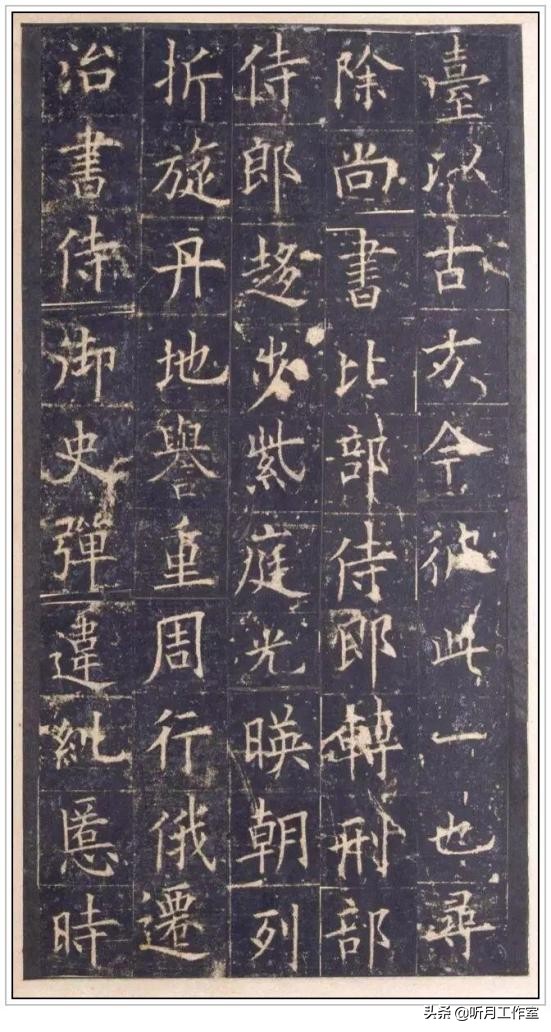 臺以古方今彼此一也尋
除尚書比部侍郎轉刑部
侍郎趍步紫庭光暎朝列
折旋丹地譽重周行俄遷
治書侍御史彈違糺慝時
头条 @听月工作室